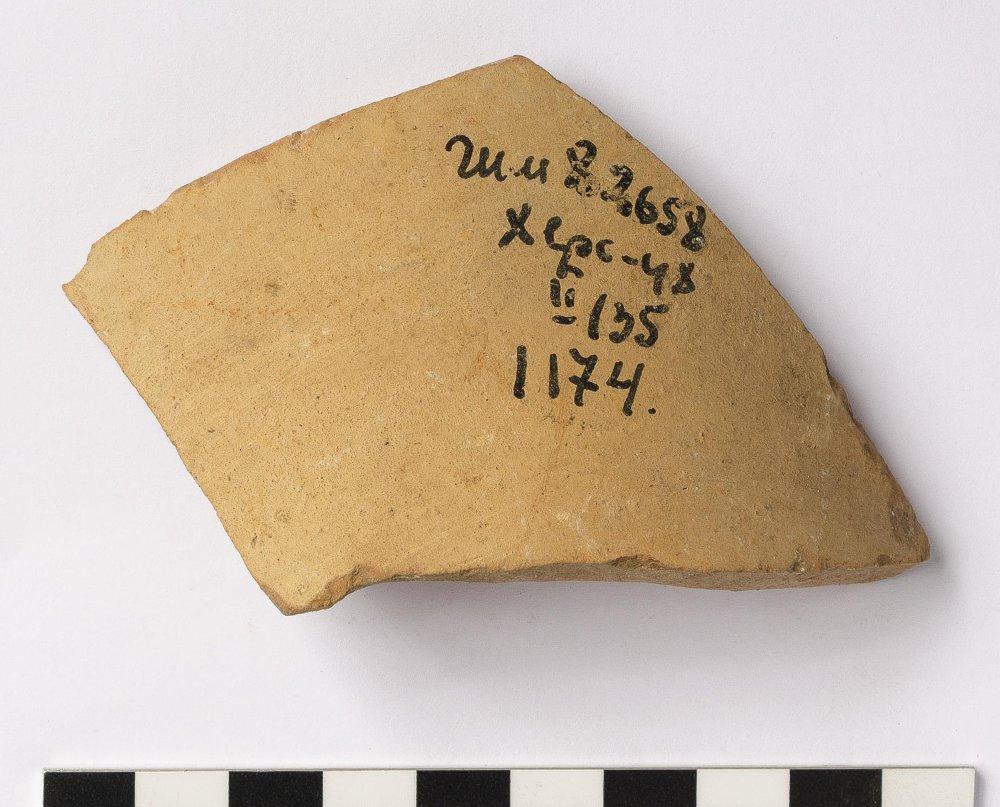 Шм 82658
Херс-48
II 135
1174.